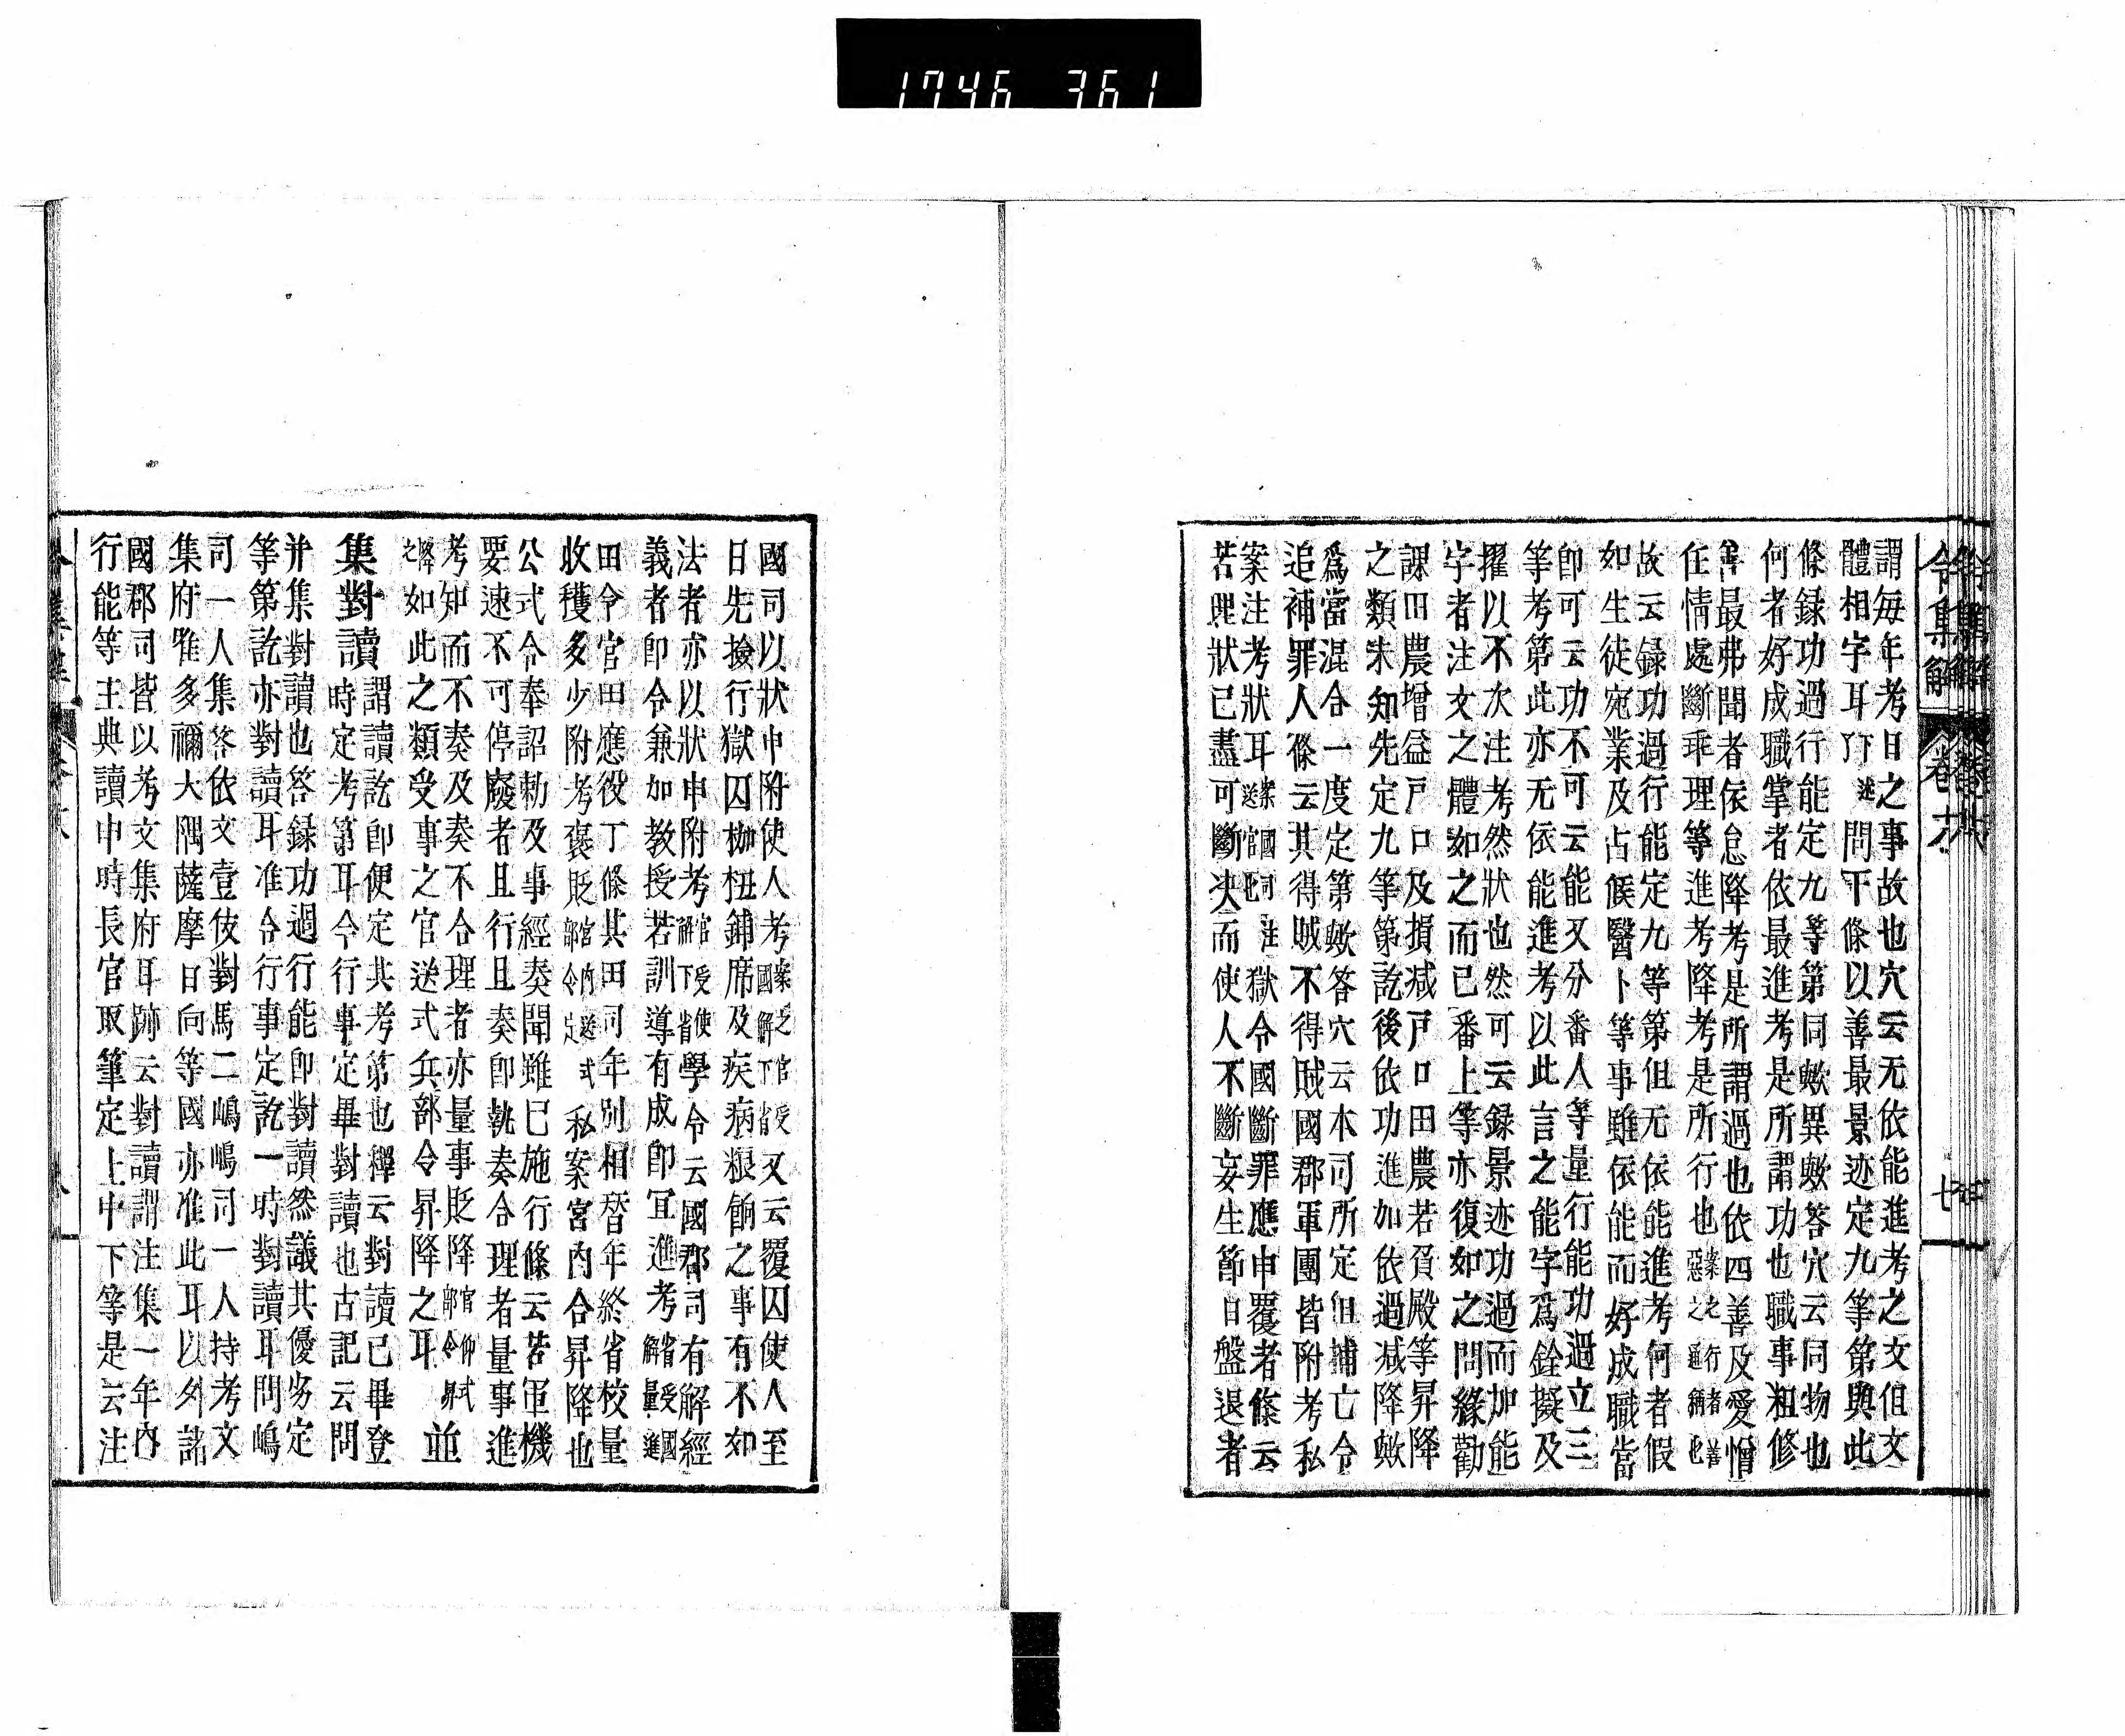 1746 361
令集解 卷十八 七
謂每年考日之事故也穴云无依能進考之文但文
體相字耳丁下述問下條以善最景迹定九等第與此
條録功過行能定九等第同歟異歟答穴云同物也
何者好成職掌者依最進考是所謂功也職事粗修
善最弗聞者依怠降考是所謂過也依四善及愛憎
任情處斷乖理等進考降考是所行也案之行者善惡之通稱也
故云録功過行能定九等第但无依能進考何者假
如生徒宛業及占候醫卜等事雖依能而好成職當
即可云功不可云能又分番人等量行能功過立三
等考第此亦无依能進考以此言之能字爲銓擬及
擢以不次注考然狀也然可云録景迹功過而加能
字者注文之體如之而已番上等亦復如之問緣勸
課田農增益戸口及損减戸口田農若負殿等昇降
之類未知先定九等第訖後依功進加依過减降歟
爲當混合一度定第歟答穴云本司所定但捕亡令
追補罪人條云其得賊不得賊國郡軍團皆附考私
案注考狀耳案國司注送官也獄令國斷罪應申覆者條云
若理狀已盡可斷决而使人不斷妄生節目盤退者
國司以狀申附使人考案之官受國解下省又云覆囚使人至
日先撿行獄囚枷杻鋪席及疾病粮餉之事有不如
法者亦以狀申附考官受使解下省學令云國郡司有解經
義者即令兼加教授若訓導有成即宜進考省受國解量進
田令官田應役丁條其田司年別相替年終省校量
收穫多少附考褒貶宮内送式部令㸃私案宮内合昇降也
公式令奉詔勅及事經奏聞雖已施行條云若軍機
要速不可停廢者且行且奏即執奏合理者量事進
考知而不奏及奏不合理者亦量事貶降官仰式部令昇降之
如此之類受事之官送式兵部令昇降之耳並
集對讀謂讀訖即便定其考第也釋云對讀已畢登
時定考第耳今行事定畢對讀也古記云問
并集對讀也答録功過行能即對讀然議其優劣定
等第訖亦對讀耳准令行事定訖一時對讀耳問嶋
司一人集答依文壹伎對馬二嶋嶋司一人持考文
集府唯多禰大隅薩摩日向等國亦准此耳以外諸
國郡司皆以考文集府耳跡云對讀謂注集一年内
行能等主典讀申時長官取筆定上中下等是云注